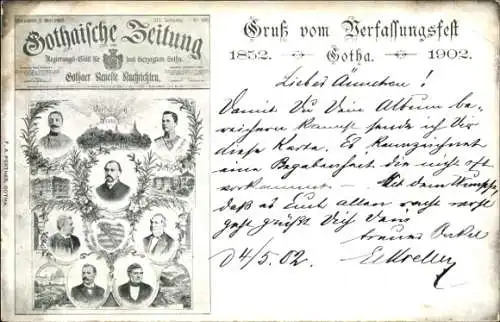 III. Jahrgang.
Gothaische Zeitung
Regierungs-Blatt für das Herzogtum Gotha.
Gothaer Neueste Nachrichten.
F. A. PERTHES, GOTHA.
Gruß vom Verfassungsfest
1852. Gotha. 1902.
Liebes Ännchen!
Damit Du Dein Album be-
reichern kannst sende ich Dir
diese Karte. Es kennzeichnet
eine Begebenheit die nicht oft
vorkommt - Mit dem Wunsche
daß es Euch allen recht
geht grüßt Dich Dein
treuer Onkel
D 4/5. 02.